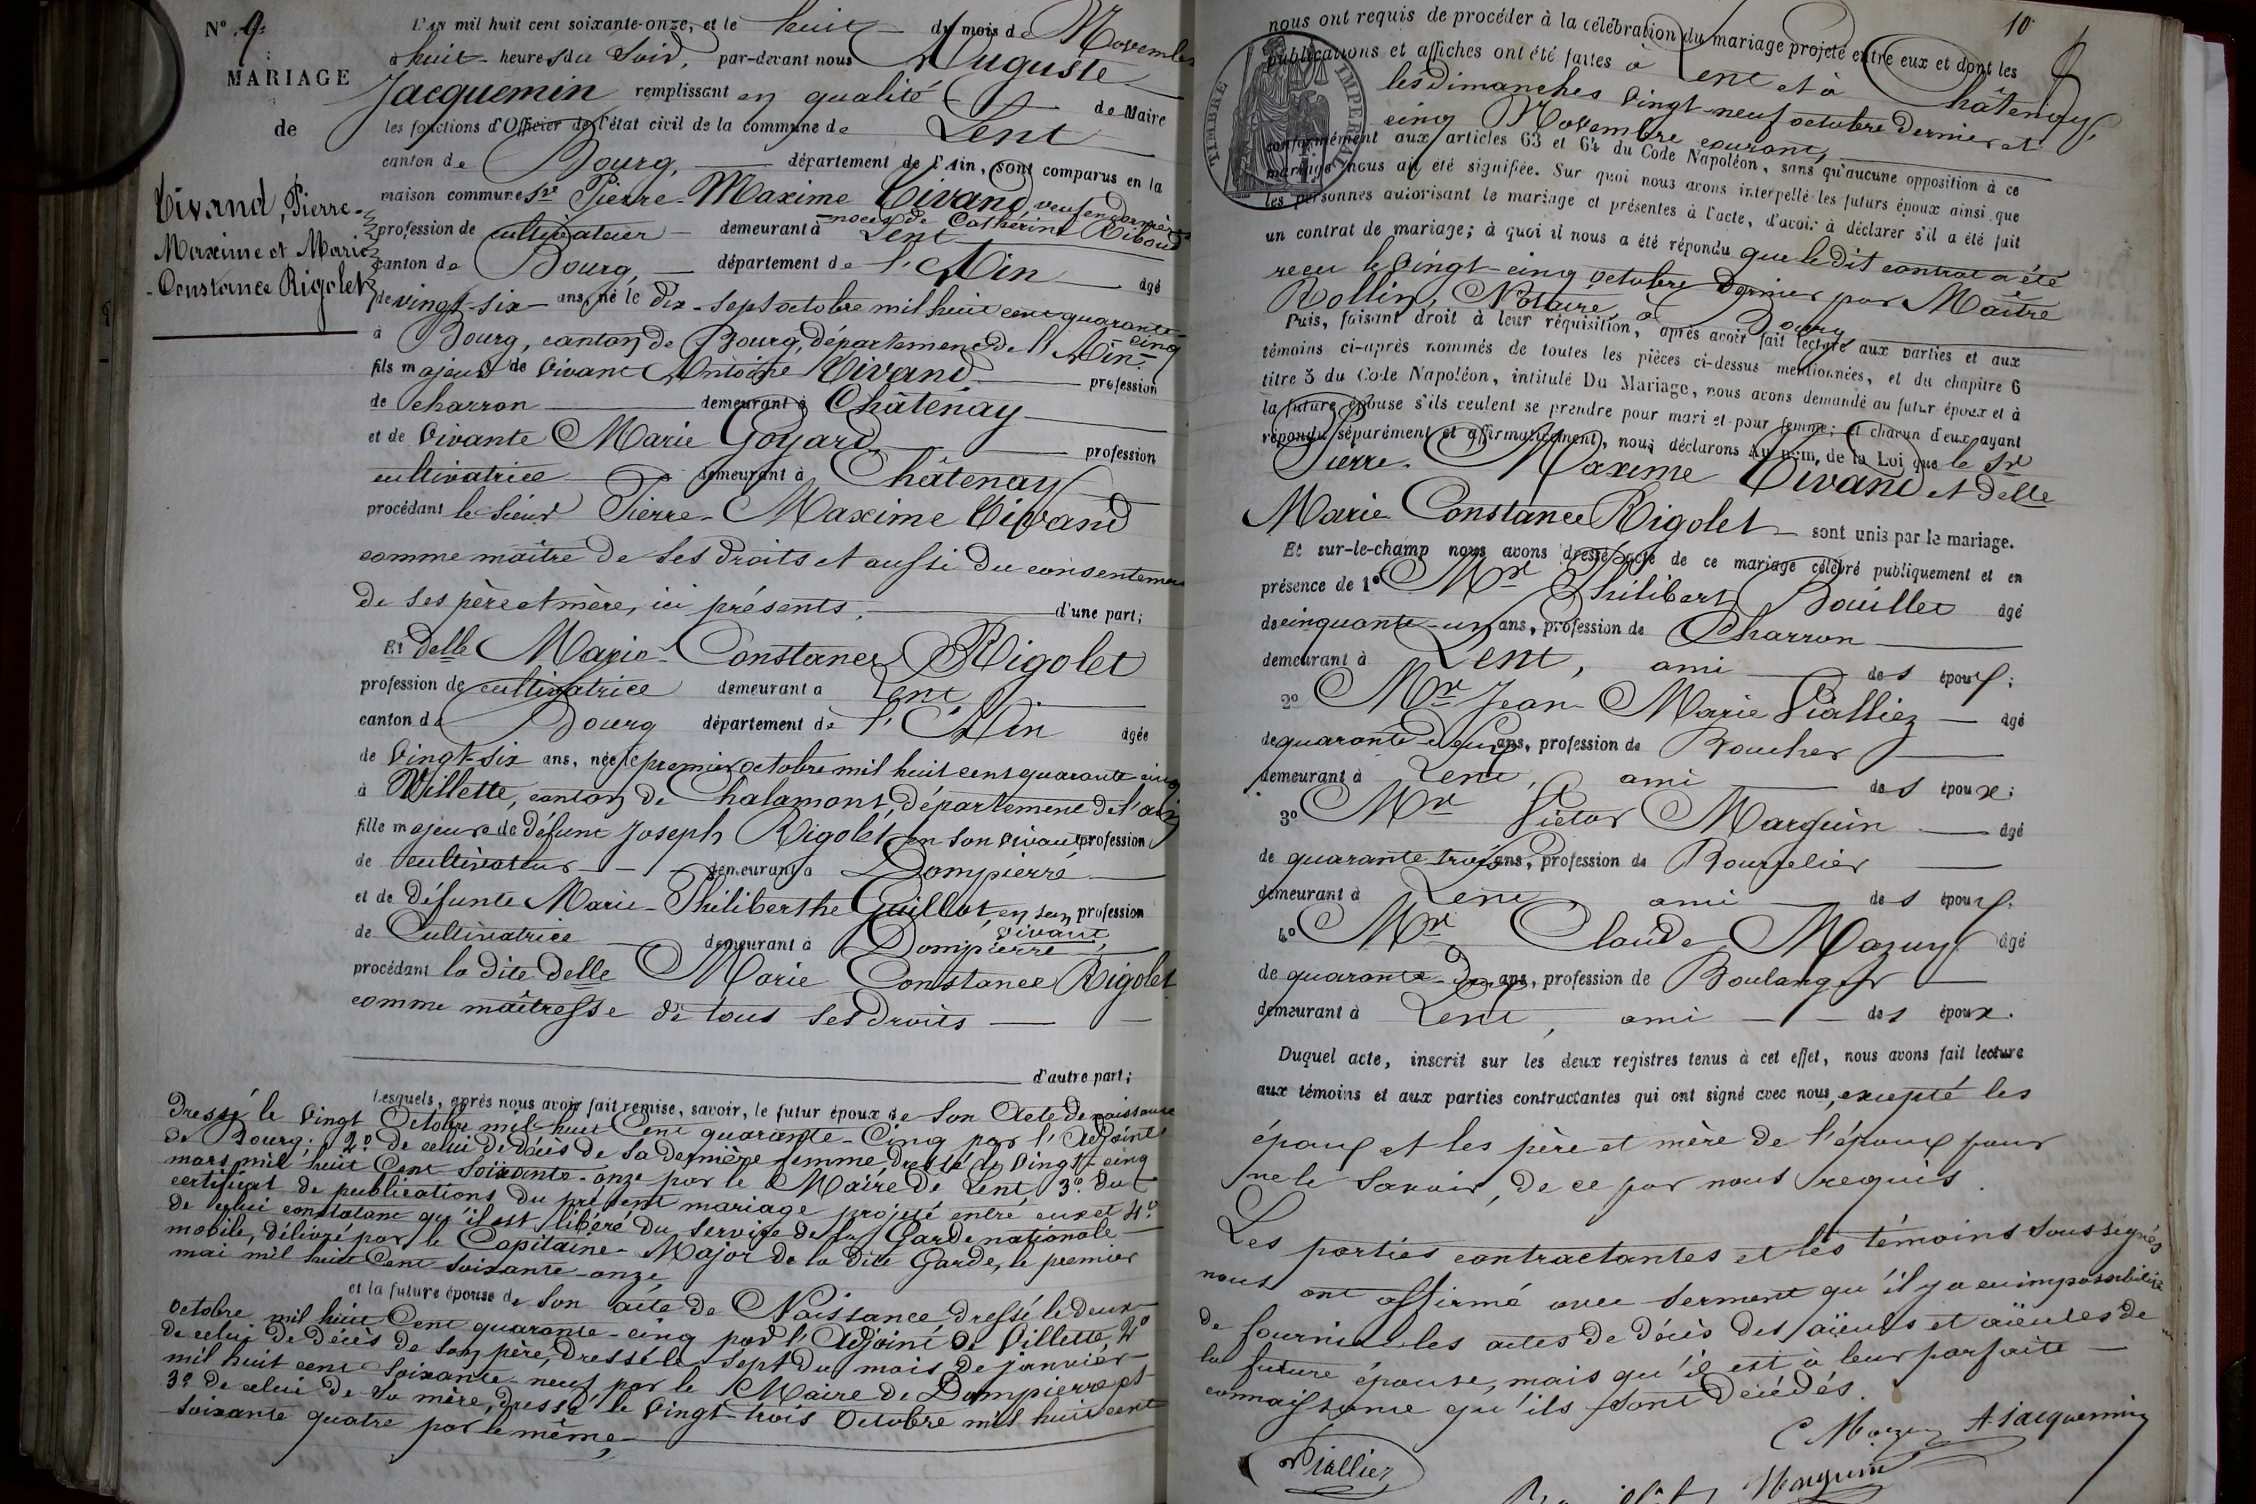 N° 9.
MARIAGE
de
Tivand, Pierre-
Maxime et Marie
-Constance Rigolet
L'an mil huit cent soixante-onze, et le huit du mois de Novembre
à huit heures du Soir, par-devant nous Auguste
Jacquemin remplissant en qualité de Maire
les fonctions d'Officier de l'état civil de la commune de Lent
canton de Bourg, département de l'Ain, sont comparus en la
maison commune Sr Pierre-Maxime Tivand veuf en dernières
noces de Catherine Riboud
profession de cultivateur demeurant à Lent
canton de Bourg, département de l'Ain âgé
de vingt-six ans, né le dix-sept octobre mil huit cent quarante-
cinq
à Bourg, canton de Bourg, département de l'Ain-
fils majeur de vivant Antoine Tivand profession
de charron demeurant à Châtenay
et de vivante Marie Goyard profession
cultivatrice demeurant à Châtenay
procédant le Sieur Pierre-Maxime Tivand
comme maître de ses droits et aussi du consentement
de ses père et mère, ici présents, d'une part;
Et delle Marie-Constance Rigolet
profession de cultivatrice demeurant à Lent,
canton de Bourg département de l'Ain âgée
de vingt-six ans, née le premier octobre mil huit cent quarante cinq
à Villette, canton de Chalamont, département de l'ain
fille majeure de défunt Joseph Rigolet en son vivant profession
de cultivateur demeurant à Dompierre
et de défunte Marie-Philiberthe Guillot, en son profession
vivant,
de Cultivatrice demeurant à Dompierre
procédant la dite delle Marie Constance Rigolet
comme maîtresse de tous ses droits
d'autre part;
Lesquels, après nous avoir fait remise, savoir, le futur époux de Son Acte de naissance
dressé le vingt Octobre mil-huit Cent quarante-Cinq par l'Adjoint
de Bourg; 2° de celui de décès de sa dernière femme, dressé le vingt-cinq
mars mil huit Cent soixante-onze par le Maire de Lent, 3° du
certificat de publications du présent mariage projeté entre eux et 4°
de celui constatant qu'il est libéré du service de la Garde nationale
mobile, délivré par le Capitaine-Major de la dite Garde, le premier
mai mil huit Cent soixante-onze
et la future épouse de Son acte de Naissance dressé le deux
octobre mil huit Cent quarante-cinq par l'Adjoint de Villette, 2°
de celui de décès de son père, dressé le sept du mois de janvier
mil huit cent soixante-neuf par le Maire de Dompierre et
3° de celui de sa mère, dressé le vingt-trois Octobre mil huit cent
soixante quatre par le même
10
TIMBRE IMPERIAL
nous ont requis de procéder à la célébration du mariage projeté entre eux et dont les
publications et affiches ont été faites à Lent et à Châtenay,
les dimanches vingt-neuf octobre dernier et
cinq Novembre courant,
conformément aux articles 63 et 64 du Code Napoléon, sans qu'aucune opposition à ce
mariage nous ait été signifiée. Sur quoi nous avons interpellé les futurs époux ainsi que
les personnes autorisant le mariage et présentes à l'acte, d'avoir à déclarer s'il a été fait
un contrat de mariage; à quoi il nous a été répondu que le dit contrat a été
reçu le vingt-cinq octobre dernier par Maître
Rollin, Notaire, à Bourg
Puis, faisant droit à leur réquisition, après avoir fait lecture aux parties et aux
témoins ci-après nommés de toutes les pièces ci-dessus mentionnées, et du chapitre 6
titre 5 du Code Napoléon, intitulé Du Mariage, nous avons demandé au futur époux et à
la future épouse s'ils veulent se prendre pour mari et pour femme; et chacun d'eux ayant
répondu séparément et affirmativement, nous déclarons au nom de la Loi que le Sr
Pierre-Maxime Tivand et delle
Marie Constance Rigolet sont unis par le mariage.
Et sur-le-champ nous avons dressé acte de ce mariage célébré publiquement et en
présence de 1° Mr Philibert Bouillet âgé
de cinquante-un ans, profession de Charron
demeurant à Lent, ami des époux;
2° Mr Jean Marie Pialliez âgé
de quarante-deux ans, profession de Boucher
demeurant à Lent, ami des époux;
3° Mr Victor Marguin âgé
de quarante-trois ans, profession de Bourrelier
demeurant à Lent, ami des époux;
4° Mr Claude Mazuy âgé
de quarante-deux ans, profession de Boulanger
demeurant à Lent, ami des époux.
Duquel acte, inscrit sur les deux registres tenus à cet effet, nous avons fait lecture
aux témoins et aux parties contractantes qui ont signé avec nous, excepté les
époux et les père et mère de l'époux pour
ne le savoir, de ce par nous requis.
Les parties contractantes et les témoins soussignés
nous ont affirmé avec serment qu'il y a eu impossibilité
de fournir les actes de décès des aïeuls et aïeules de
la future épouse, mais qu'il est à leur parfaite
connaissance qu'ils sont décédés.
C Mazuy A. Jacquemin
Pialliez
Marguin